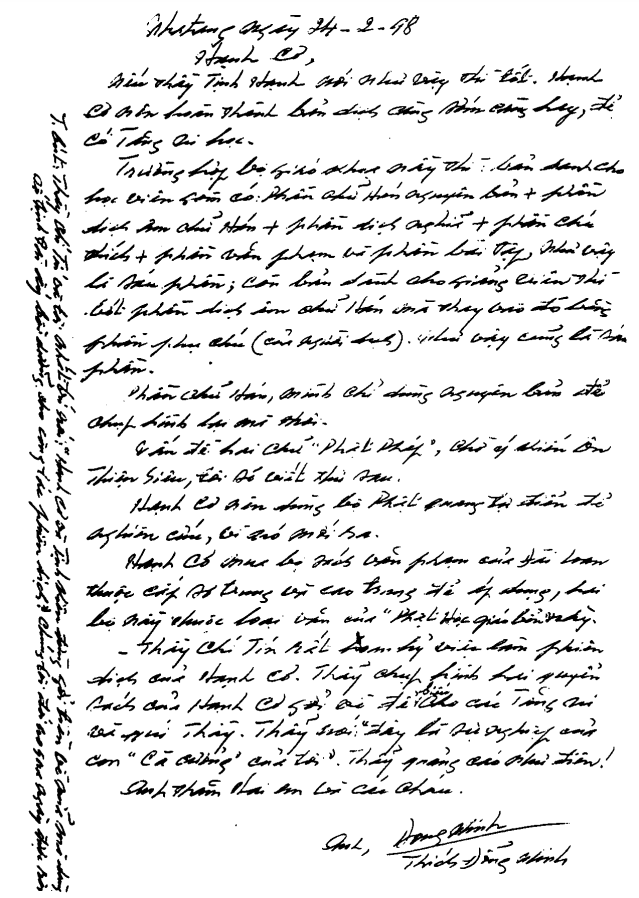 Nhatrang ngày 24-2-98
Hạnh Cơ,
Nếu Thầy Tịnh Hạnh nói như vậy thì tốt. Hạnh
Cơ nên hoàn thành bản dịch càng sớm càng hay, để
có Tăng Ni học.
Trường hợp bộ giáo khoa này thì: bản dành cho
học viên gồm có: Phần chữ Hán nguyên bản + phần
dịch âm chữ Hán + phần dịch nghĩa + phần chú
thích + phần văn phạm và phần bài tập, như vậy
là sáu phần; còn bản dành cho giảng viên thì
bớt phần dịch âm chữ Hán mà thay vào đó bằng
phần phụ chú (của người dịch). Như vậy cũng là sáu
phần.
Phần chữ Hán, mình chỉ dùng nguyên bản để
chụp hình lại mà thôi.
Vấn đề hai chữ "Phật Pháp", chờ ý kiến Ôn
Thiện Siêu, tôi sẽ viết thư sau.
Hạnh Cơ nên dùng bộ Phật Quang từ điển để
nghiên cứu, vì nó mới ra.
Hạnh Cơ mua bộ sách văn phạm của Đài Loan
thuộc cấp sơ trung và cao trung để áp dụng, hai
bộ này thuộc loại văn của "Phật Học giáo bản" này.
- Thầy Chí Tín rất hoan hỷ việc làm phiên
dịch của Hạnh Cơ. Thầy chụp hình hai quyển
sách của Hạnh Cơ gởi về để biếu cho các Tăng Ni
và quí Thầy. Thầy nói: "đây là sự nghiệp của
con "Cà cuống" của tôi". Thầy quảng cáo như điên!
Anh thăm Hai em và các cháu.
Anh,
Đồng Minh
Thích Đổng Minh
T. bút: Thầy Chí Tín và tôi nhất trí nói: "Hạnh Cơ và Tịnh đừng gởi tiền về nữa mà dùng
số tịnh tài ấy bồi dưỡng cho công tác phiên dịch".